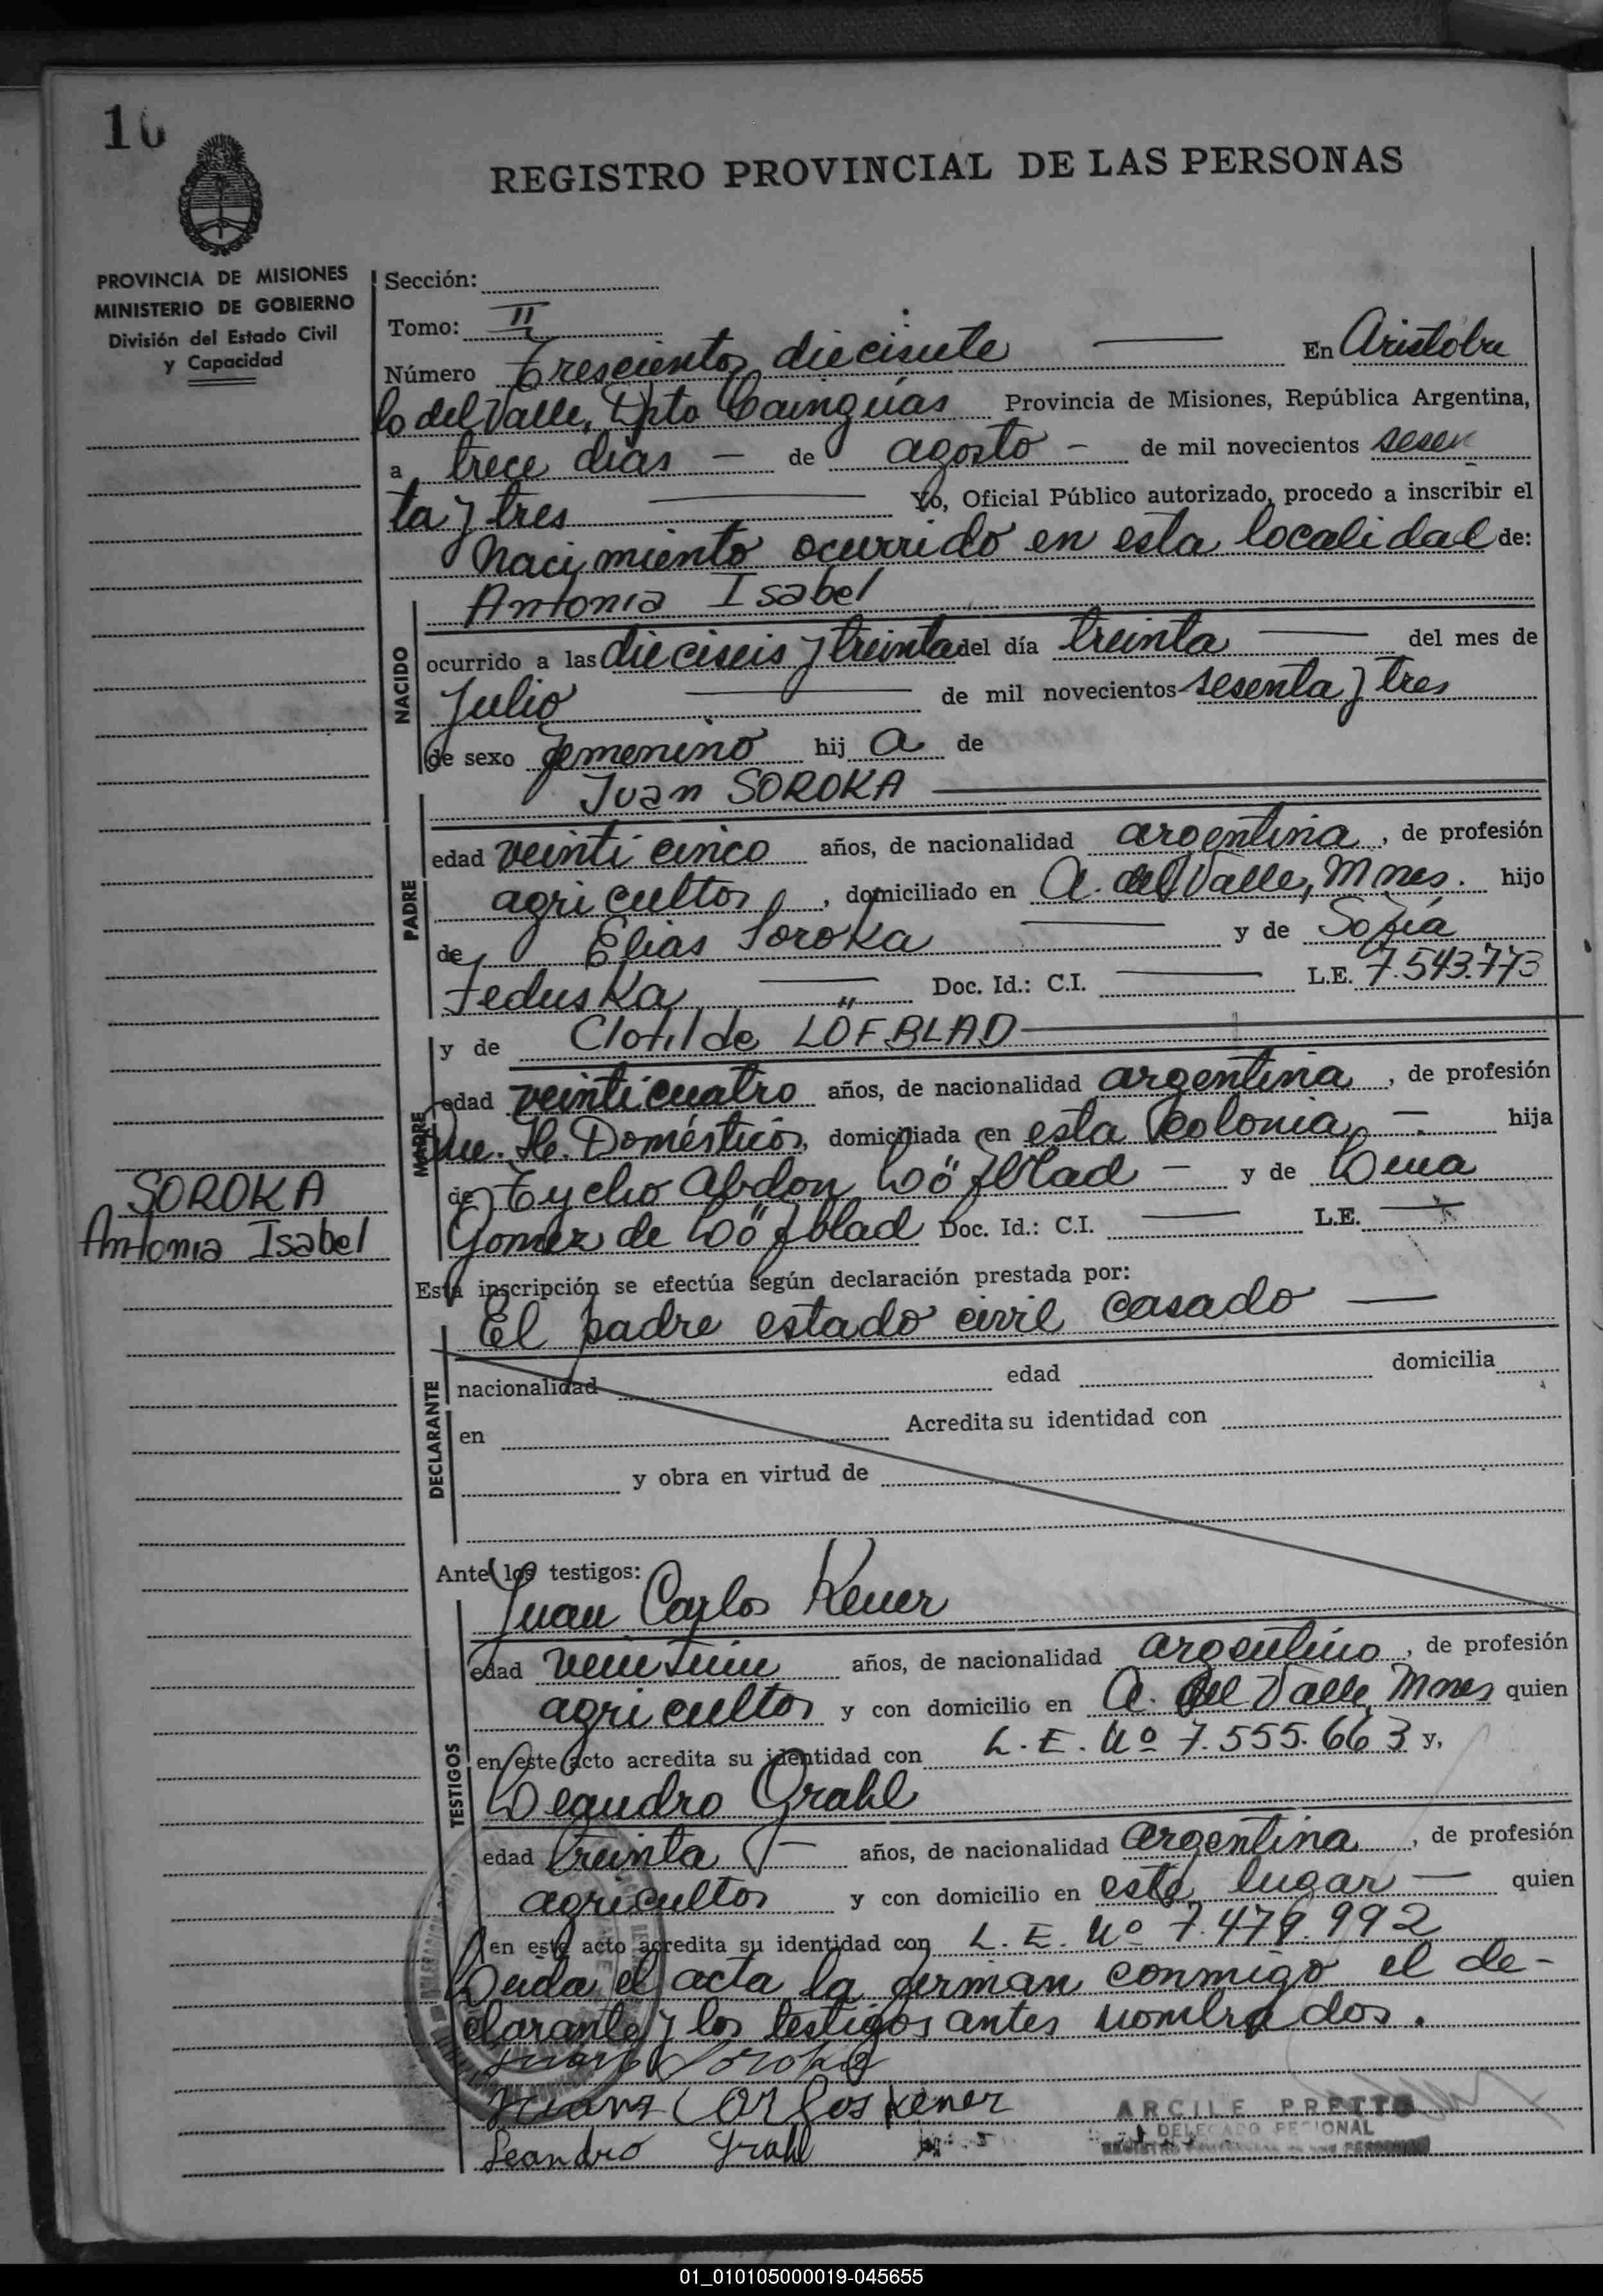 16
REGISTRO PROVINCIAL DE LAS PERSONAS
PROVINCIA DE MISIONES
MINISTERIO DE GOBIERNO
División del Estado Civil
y Capacidad
Sección:
Tomo: II
Número Trescientos diecisiete — En Aristóbu
lo del Valle, Dpto Cainguás Provincia de Misiones, República Argentina,
a trece dias — de agosto — de mil novecientos sesen
ta y tres — Yo, Oficial Público autorizado, procedo a inscribir el
Nacimiento ocurrido en esta localidad de:
Antonia Isabel
NACIDO
ocurrido a las dieciseis y treinta del día treinta — del mes de
Julio — de mil novecientos sesenta y tres
de sexo femenino hij a de
Juan SOROKA —
PADRE
edad veinti cinco años, de nacionalidad argentina, de profesión
agricultor, domiciliado en A. del Valle, Mnes. hijo
de Elias Soroka — y de Sofía
Feduska — Doc. Id.: C.I. — L.E. 7.543.773
y de Clotilde LÖFBLAD —
MADRE
edad veinticuatro años, de nacionalidad argentina, de profesión
Qu. H. Domésticos, domiciliada en esta Colonia, — hija
de Tycho Abdon Löfblad — y de Lena
Gomez de Löfblad Doc. Id.: C.I. — L.E. —
SOROKA
Antonia Isabel
Esta inscripción se efectúa según declaración prestada por:
El padre estado civil casado —
DECLARANTE
nacionalidad edad domicilia
en Acredita su identidad con
y obra en virtud de
Ante los testigos:
Juan Carlos Kener
TESTIGOS
edad veintiun años, de nacionalidad argentino, de profesión
agricultor y con domicilio en A. del Valle, Mnes quien
en este acto acredita su identidad con L.E. Nº 7.555.663 y,
Leandro Grahl
edad treinta — años, de nacionalidad argentina, de profesión
agricultor y con domicilio en este lugar — quien
en este acto acredita su identidad con L.E. Nº 7.479.992
Leida el acta la firman conmigo el de-
clarante y los testigos antes nombrados.
Juan Soroka
Juan Carlos Kener
Leandro Grahl
ARCILE PRETTO
DELEGADO REGIONAL
01_010105000019-045655